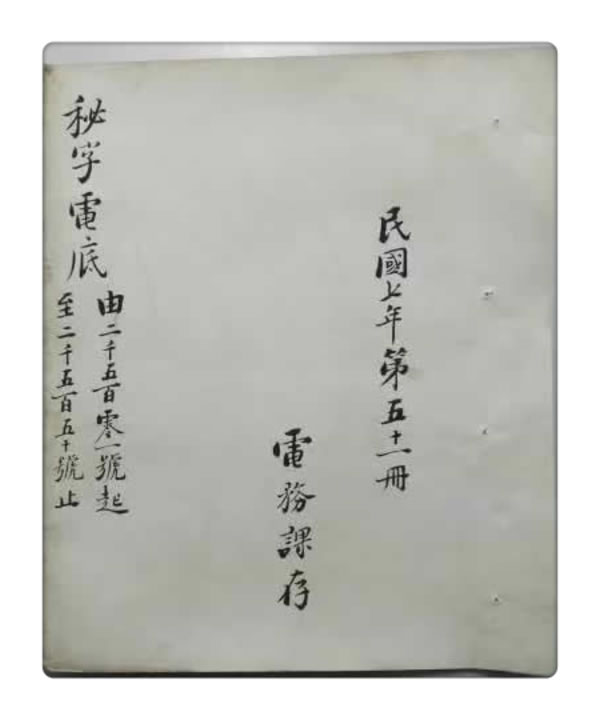 民國七年第五十一冊
電務課存
秘字電底
由二千五百零一號起
至二千五百五十號止